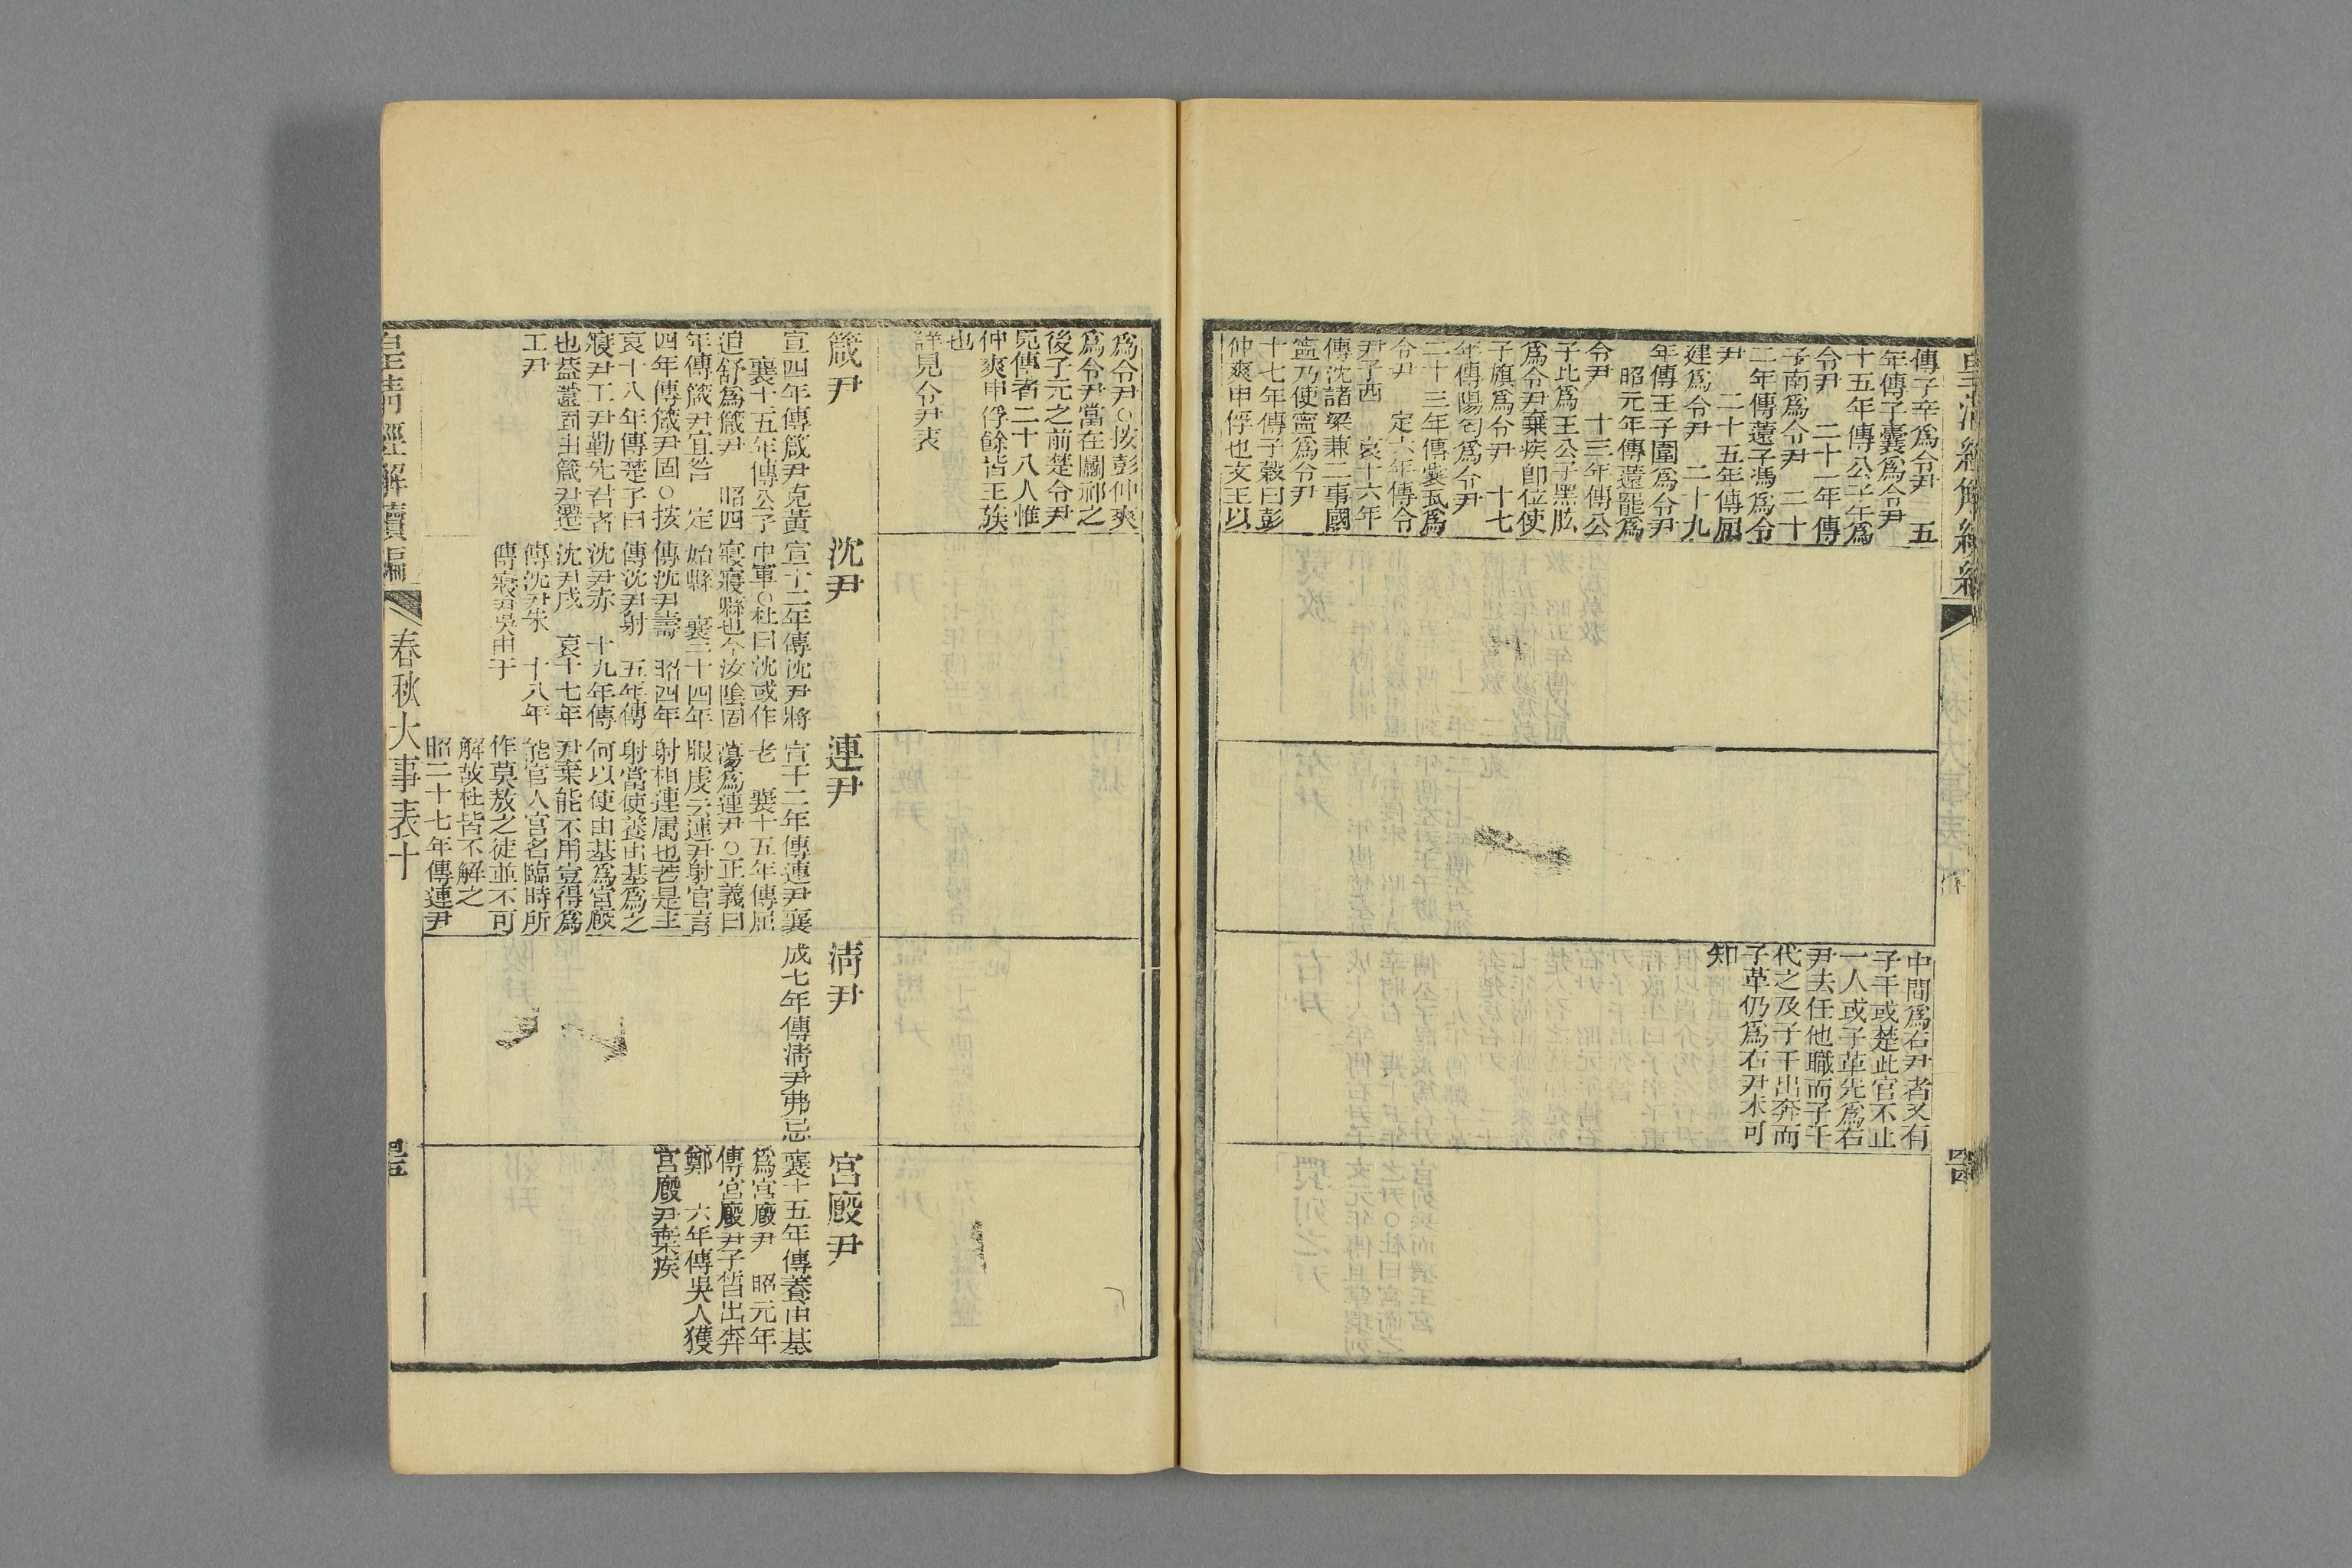 傳子辛爲令尹　五
年傳子囊爲令尹
十五年傳公子午爲
令尹　二十一年傳
子南爲令尹　二十
二年傳薳子馮爲令
尹　二十五年傳屈
建爲令尹　二十九
年傳王子圍爲令尹
昭元年傳薳罷爲
令尹　十三年傳公
子比爲王公子黑肱
爲令尹棄疾卽位使
子旗爲令尹　十七
年傳陽匄爲令尹
二十三年傳囊瓦爲
令尹　定六年傳令
尹子西　哀十六年
傳沈諸梁兼二事國
寧乃使寧爲令尹
十七年傳子穀曰彭
仲爽申俘也文王以
中間爲右尹者又有
子干或楚此官不止
一人或子革先爲右
尹去任他職而子干
代之及子干出奔而
子革仍爲右尹未可
知
爲令尹○按彭仲爽
爲令尹當在鬭祁之
後子元之前楚令尹
見傳者二十八人惟
仲爽申俘餘皆王族
也
詳見令尹表
箴尹
宣四年傳箴尹克黃
襄十五年傳公子
追舒爲箴尹　昭四
年傳箴尹宜咎　定
四年傳箴尹固○按
哀十八年傳楚子曰
寢尹工尹勤先君者
也蓋薳固由箴尹遷
工尹
沈尹
宣十二年傳沈尹將
中軍○杜曰沈或作
寢寢縣也今汝陰固
始縣　襄二十四年
傳沈尹壽　昭四年
傳沈尹射　五年傳
沈尹赤　十九年傳
沈尹戌　哀十七年
傳沈尹朱　十八年
傳寢尹吳由于
連尹
宣十二年傳連尹襄
老　襄十五年傳屈
蕩爲連尹○正義曰
服虔云連尹射官言
射相連屬也若是主
射當使養由基爲之
何以使由基爲宮廄
尹棄能不用豈得爲
能官人官名臨時所
作莫敖之徒並不可
解故杜皆不解之
昭二十七年傳連尹
淸尹
成七年傳淸尹弗忌
宮廄尹
襄十五年傳養由基
爲宮廄尹　昭元年
傳宮廄尹子皙出奔
鄭　六年傳吳人獲
宮廄尹棄疾
皇淸經解續編
春秋大事表十